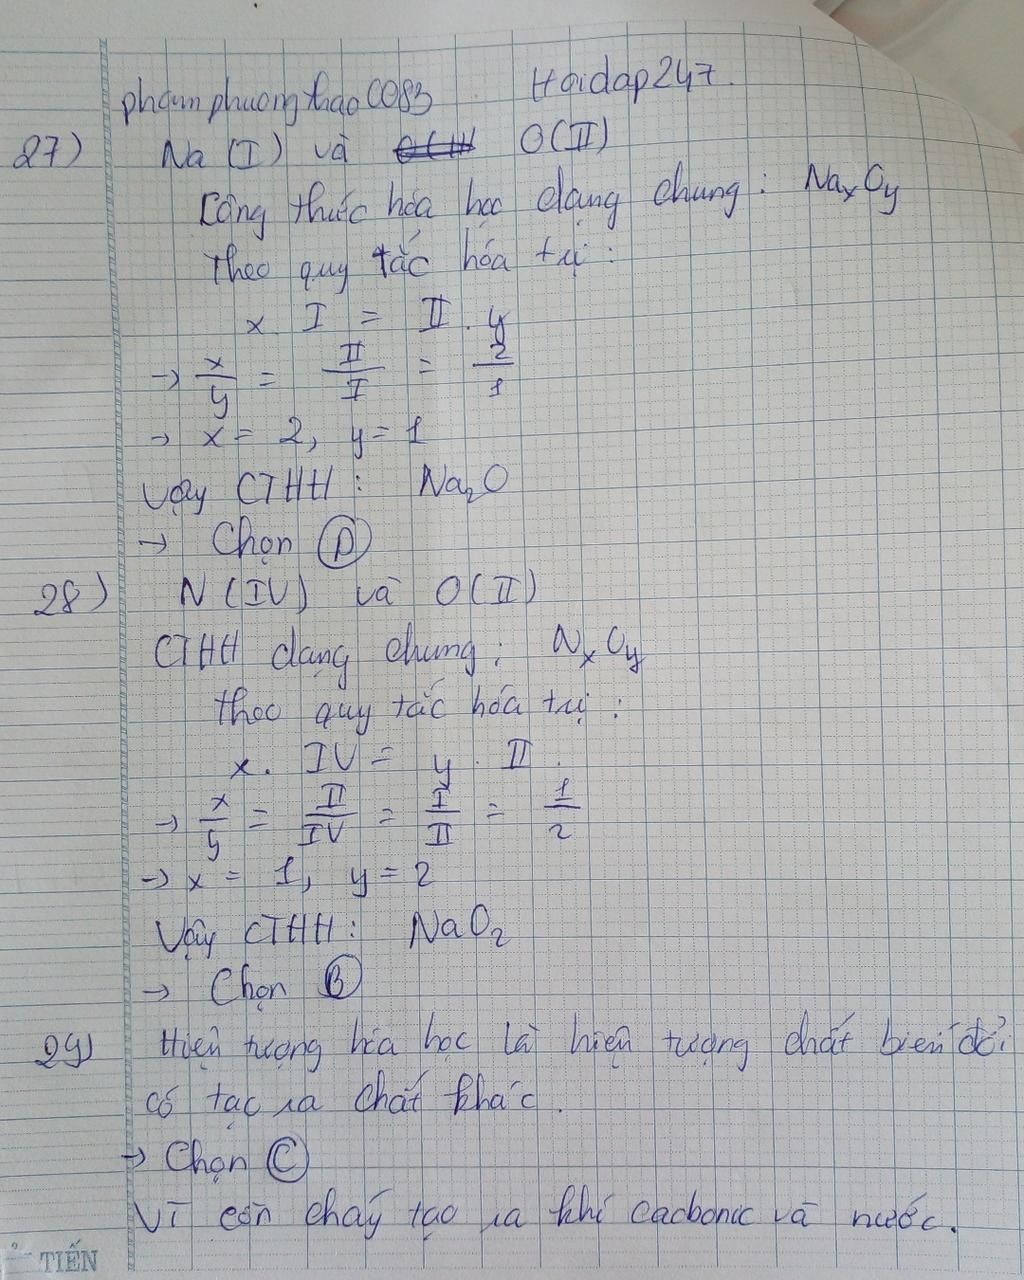 phamphuongthao0083 Hoidap247.
27) Na (I) và O(II)
Công thức hóa học dạng chung: NaxOy
Theo quy tắc hóa trị:
x. I = II. y
→ x/y = II/I = 2/1
→ x = 2, y = 1
Vậy CTHH: Na2O
→ Chọn D
28) N (IV) và O(II)
CTHH dạng chung: NxOy
Theo quy tắc hóa trị:
x. IV = y. II.
→ x/y = II/IV = I/II = 1/2
→ x = 1, y = 2
Vậy CTHH: NaO2
→ Chọn B
29) Hiện tượng hóa học là hiện tượng chất biến đổi
có tạo ra chất khác.
→ Chọn C
Vì cồn cháy tạo ra khí cacbonic và nước.
TIẾN